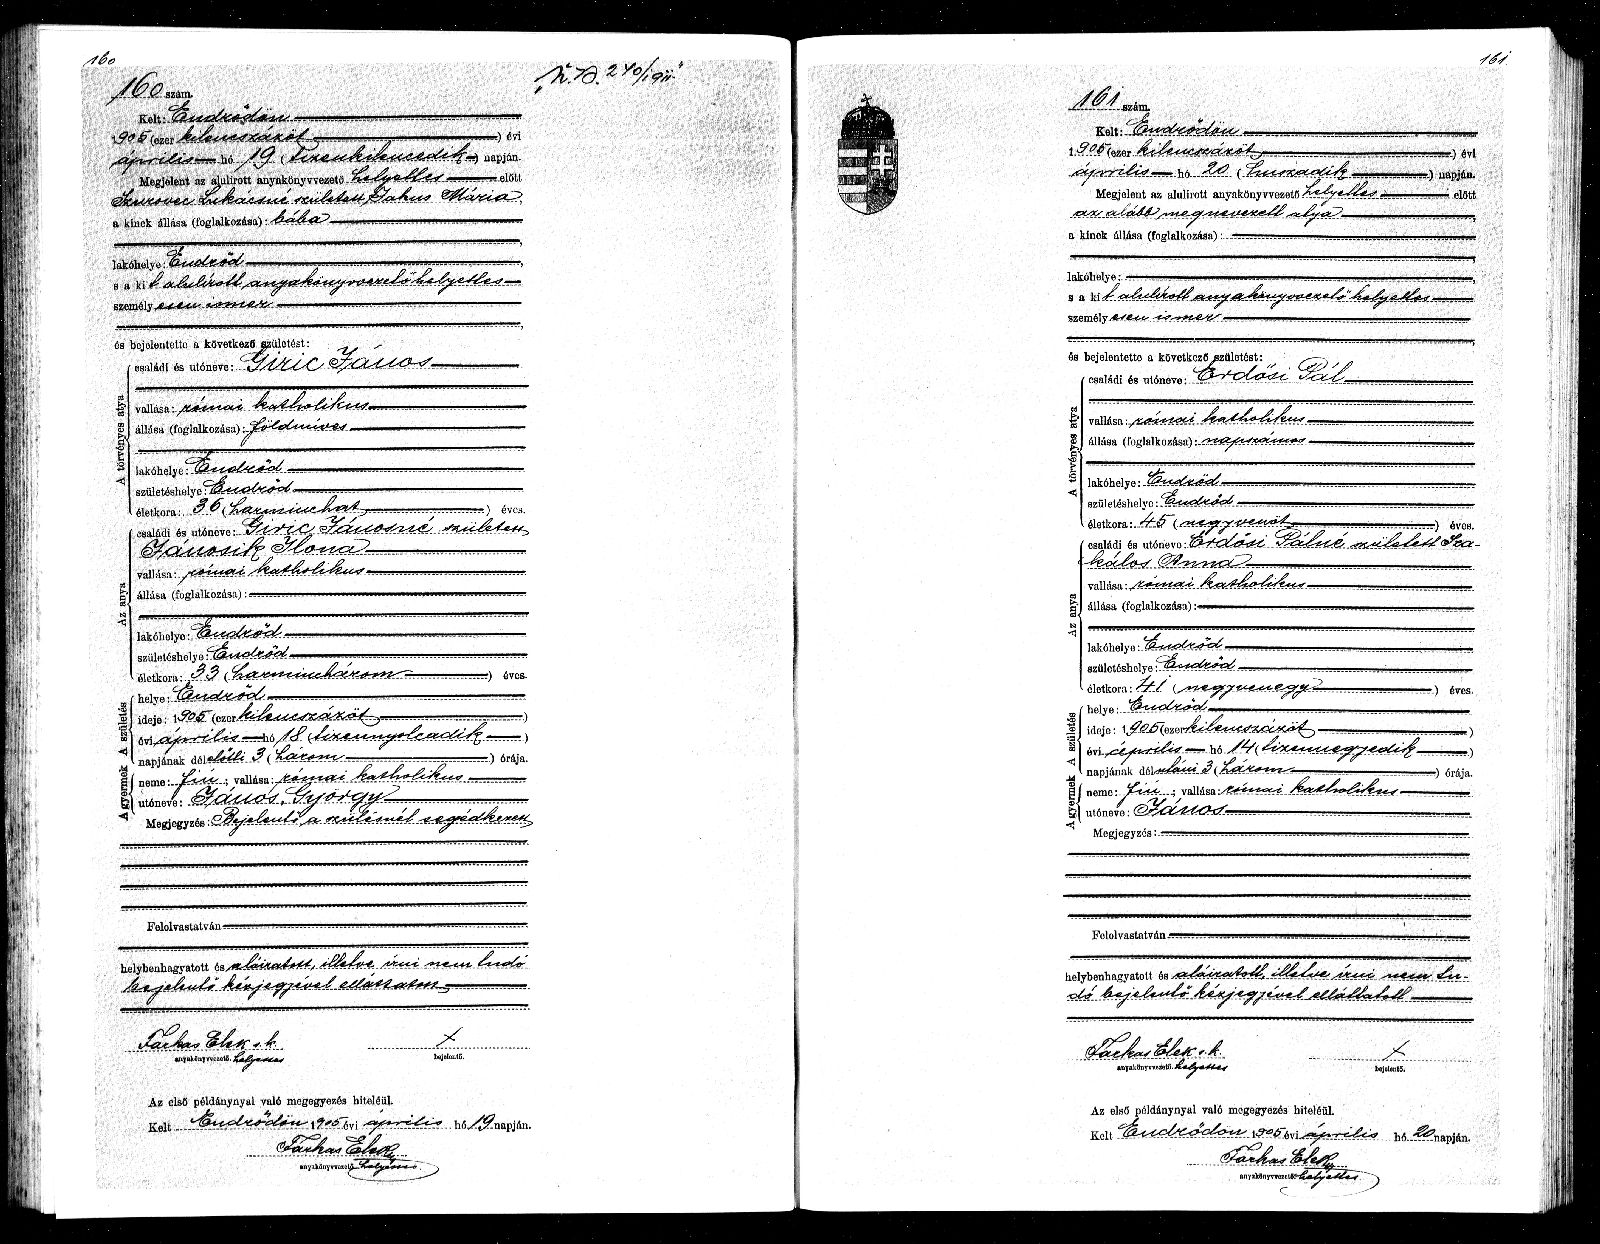 160
160 szám.
Kelt: Endrődön
1905 (ezer kilencszázöt) évi
április hó 19 (tizenkilencedik) napján.
Megjelent az alulirott anyakönyvvezető helyettes előtt
Lukácsné született Jakus Mária,
a kinek állása (foglalkozása): bába
lakóhelye: Endrőd
s a kit alulirott anyakönyvvezető helyettes
személyesen ismer
és bejelentette a következő születést:
A törvényes atya
családi és utóneve: Giric János
vallása: római katholikus
állása (foglalkozása): földmíves
lakóhelye: Endrőd
születéshelye: Endrőd
életkora: 36 (harminchat) éves.
Az anya
családi és utóneve: Giric Jánosné született
Jánosik Ilona
vallása: római katholikus
állása (foglalkozása):
lakóhelye: Endrőd
születéshelye: Endrőd
életkora: 33 (harminchárom) éves.
A születés
helye: Endrőd
ideje: 1905 (ezer kilencszázöt)
évi április hó 18 (tizennyolcadik)
napjának délelőtti 3 (három) órája.
A gyermek
neme: fiú; vallása: római katholikus
utóneve: János, György
Megjegyzés: Bejelentő a szülésnél segédkezett
Felolvastatván
helybenhagyatott és aláíratott, illetve írni nem tudó
bejelentő kézjegyével elláttatott
Farkas Elek s.k. x
anyakönyvvezető helyettes bejelentő.
Az első példánynyal való megegyezés hiteléül.
Kelt Endrődön 1905 évi április hó 19 napján.
Farkas Elek
anyakönyvvezető helyettes
161
161 szám.
Kelt: Endrődön
1905 (ezer kilencszázöt) évi
április hó 20 (huszadik) napján.
Megjelent az alulirott anyakönyvvezető helyettes előtt
az alább megnevezett atya
a kinek állása (foglalkozása):
lakóhelye:
s a kit alulirott anyakönyvvezető helyettes
személyesen ismer
és bejelentette a következő születést:
A törvényes atya
családi és utóneve: Erdősi Pál
vallása: római katholikus
állása (foglalkozása): napszámos
lakóhelye: Endrőd
születéshelye: Endrőd
életkora: 45 (negyvenöt) éves.
Az anya
családi és utóneve: Erdősi Pálné született Sza-
kálos Anna
vallása: római katholikus
állása (foglalkozása):
lakóhelye: Endrőd
születéshelye: Endrőd
életkora: 41 (negyvenegy) éves.
A születés
helye: Endrőd
ideje: 1905 (ezer kilencszázöt)
évi április hó 14 (tizennegyedik)
napjának délutáni 3 (három) órája.
A gyermek
neme: fiú; vallása: római katholikus
utóneve: János
Megjegyzés:
Felolvastatván
helybenhagyatott és aláíratott, illetve írni nem tu-
dó bejelentő kézjegyével elláttatott
Farkas Elek s.k. x
anyakönyvvezető helyettes bejelentő.
Az első példánynyal való megegyezés hiteléül.
Kelt Endrődön 1905 évi április hó 20 napján.
Farkas Elek
anyakönyvvezető helyettes